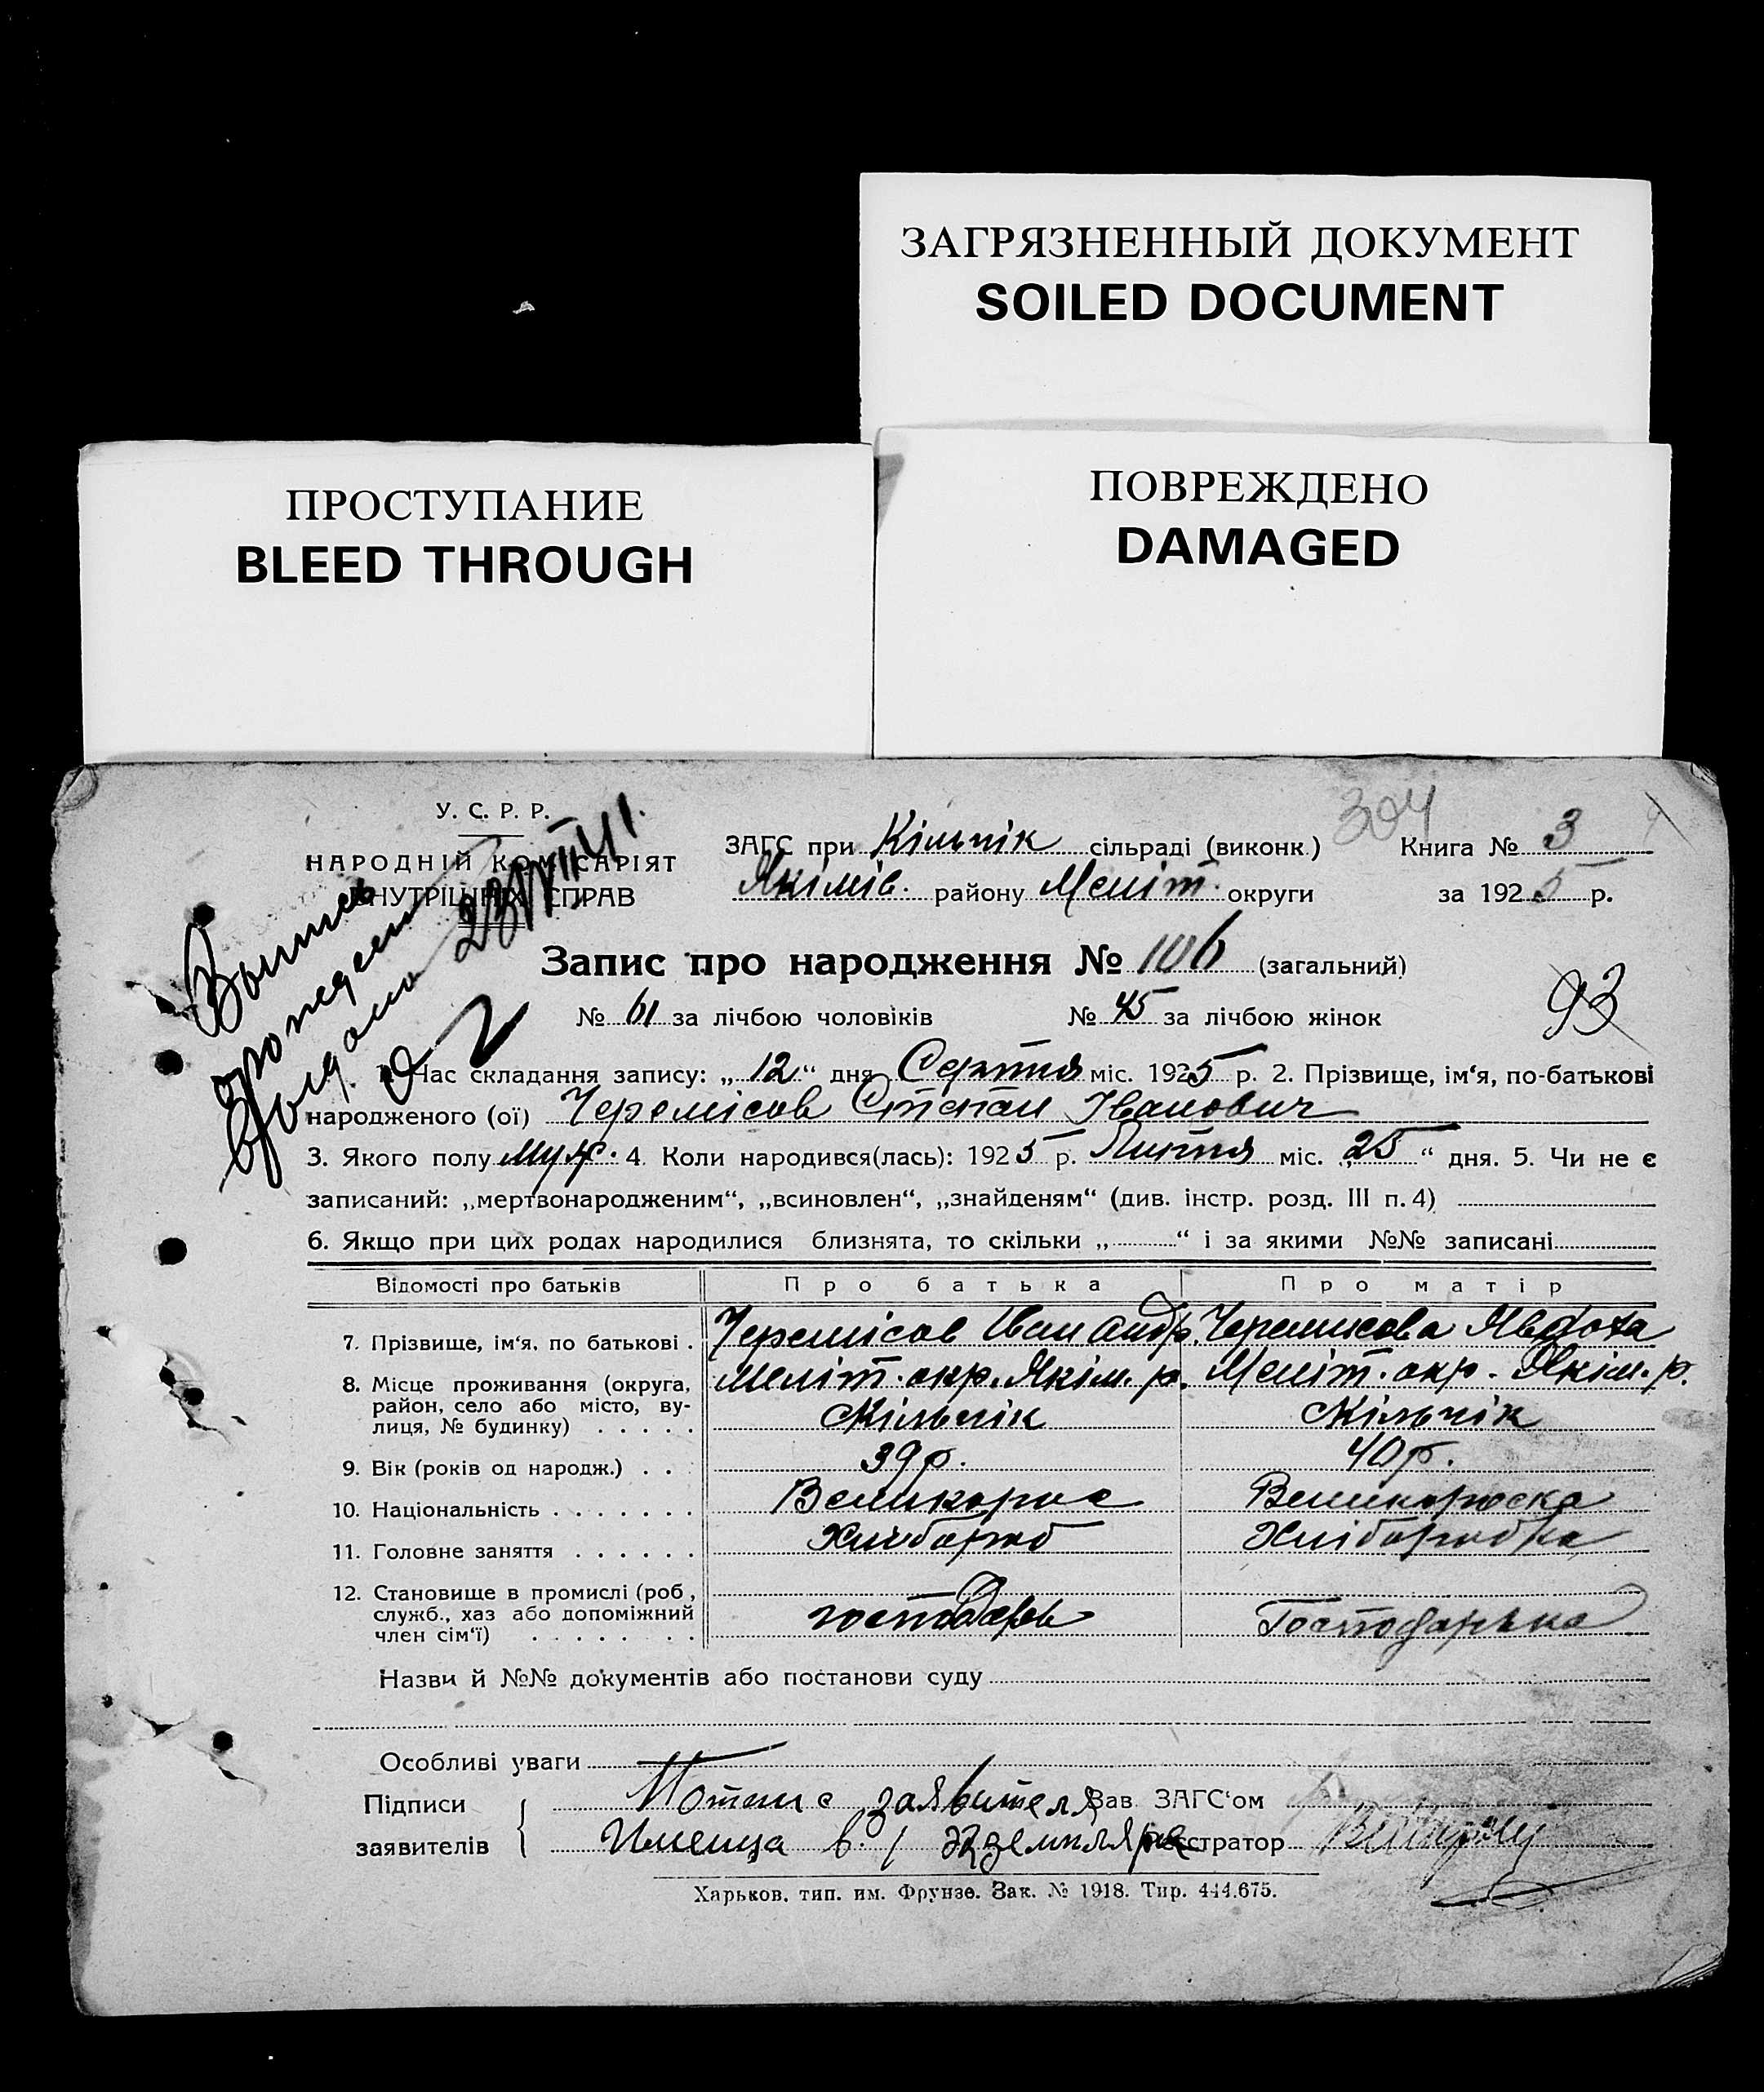 ЗАГРЯЗНЕННЫЙ ДОКУМЕНТ
SOILED DOCUMENT
ПРОСТУПАНИЕ
BLEED THROUGH
ПОВРЕЖДЕНО
DAMAGED
У. С. Р. Р.
НАРОДНІЙ КОМІСАРІЯТ
ВНУТРІШНІХ СПРАВ
304
ЗАГС при Кільчік сільраді (виконк.) Книга № 3
Якімів. району Меліт. округи за 1925 р.
Запис про народження № 106 (загальний)
№ 61 за лічбою чоловіків № 45 за лічбою жінок
93
1. Час складання запису: „12“ дня Серпня міс. 1925 р. 2. Прізвище, ім‘я, по-батькові
народженого (ої) Черемісов Степан Іванович
3. Якого полу муж. 4. Коли народився(лась): 1925 р. Липня міс. „25“ дня. 5. Чи не є
записаний: „мертвонародженим“, „всиновлен“, „знайденям“ (див. інстр. розд. III п. 4)
6. Якщо при цих родах народилися близнята, то скільки „ “ і за якими №№ записані
Відомості про батьків Про батька Про матір
7. Прізвище, ім‘я, по батькові . Черемісов Іван Андр. Черемисова Явдоха
8. Місце проживання (округа, Меліт. окр. Якім. р. Меліт. окр. Якім. р.
район, село або місто, ву-
лиця, № будинку) . . . . . Кільчік Кільчік
9. Вік (років од народж.) . . . 39 р. 40 р.
10. Національність . . . . . . . Великорос Великороска
11. Головне заняття . . . . . . Хлібороб Хліборобка
12. Становище в промислі (роб.,
служб., хаз. або допоміжний
член сім‘ї) . . . . . . . . господарь Господарька
Назви й №№ документів або постанови суду
Особливі уваги
Підписи заявителя Зав. ЗАГС‘ом
заявителів Имеица в. 1 экземпляре Реєстратор
Харьков, тип. им. Фрунзе. Зак. № 1918. Тир. 444.675.